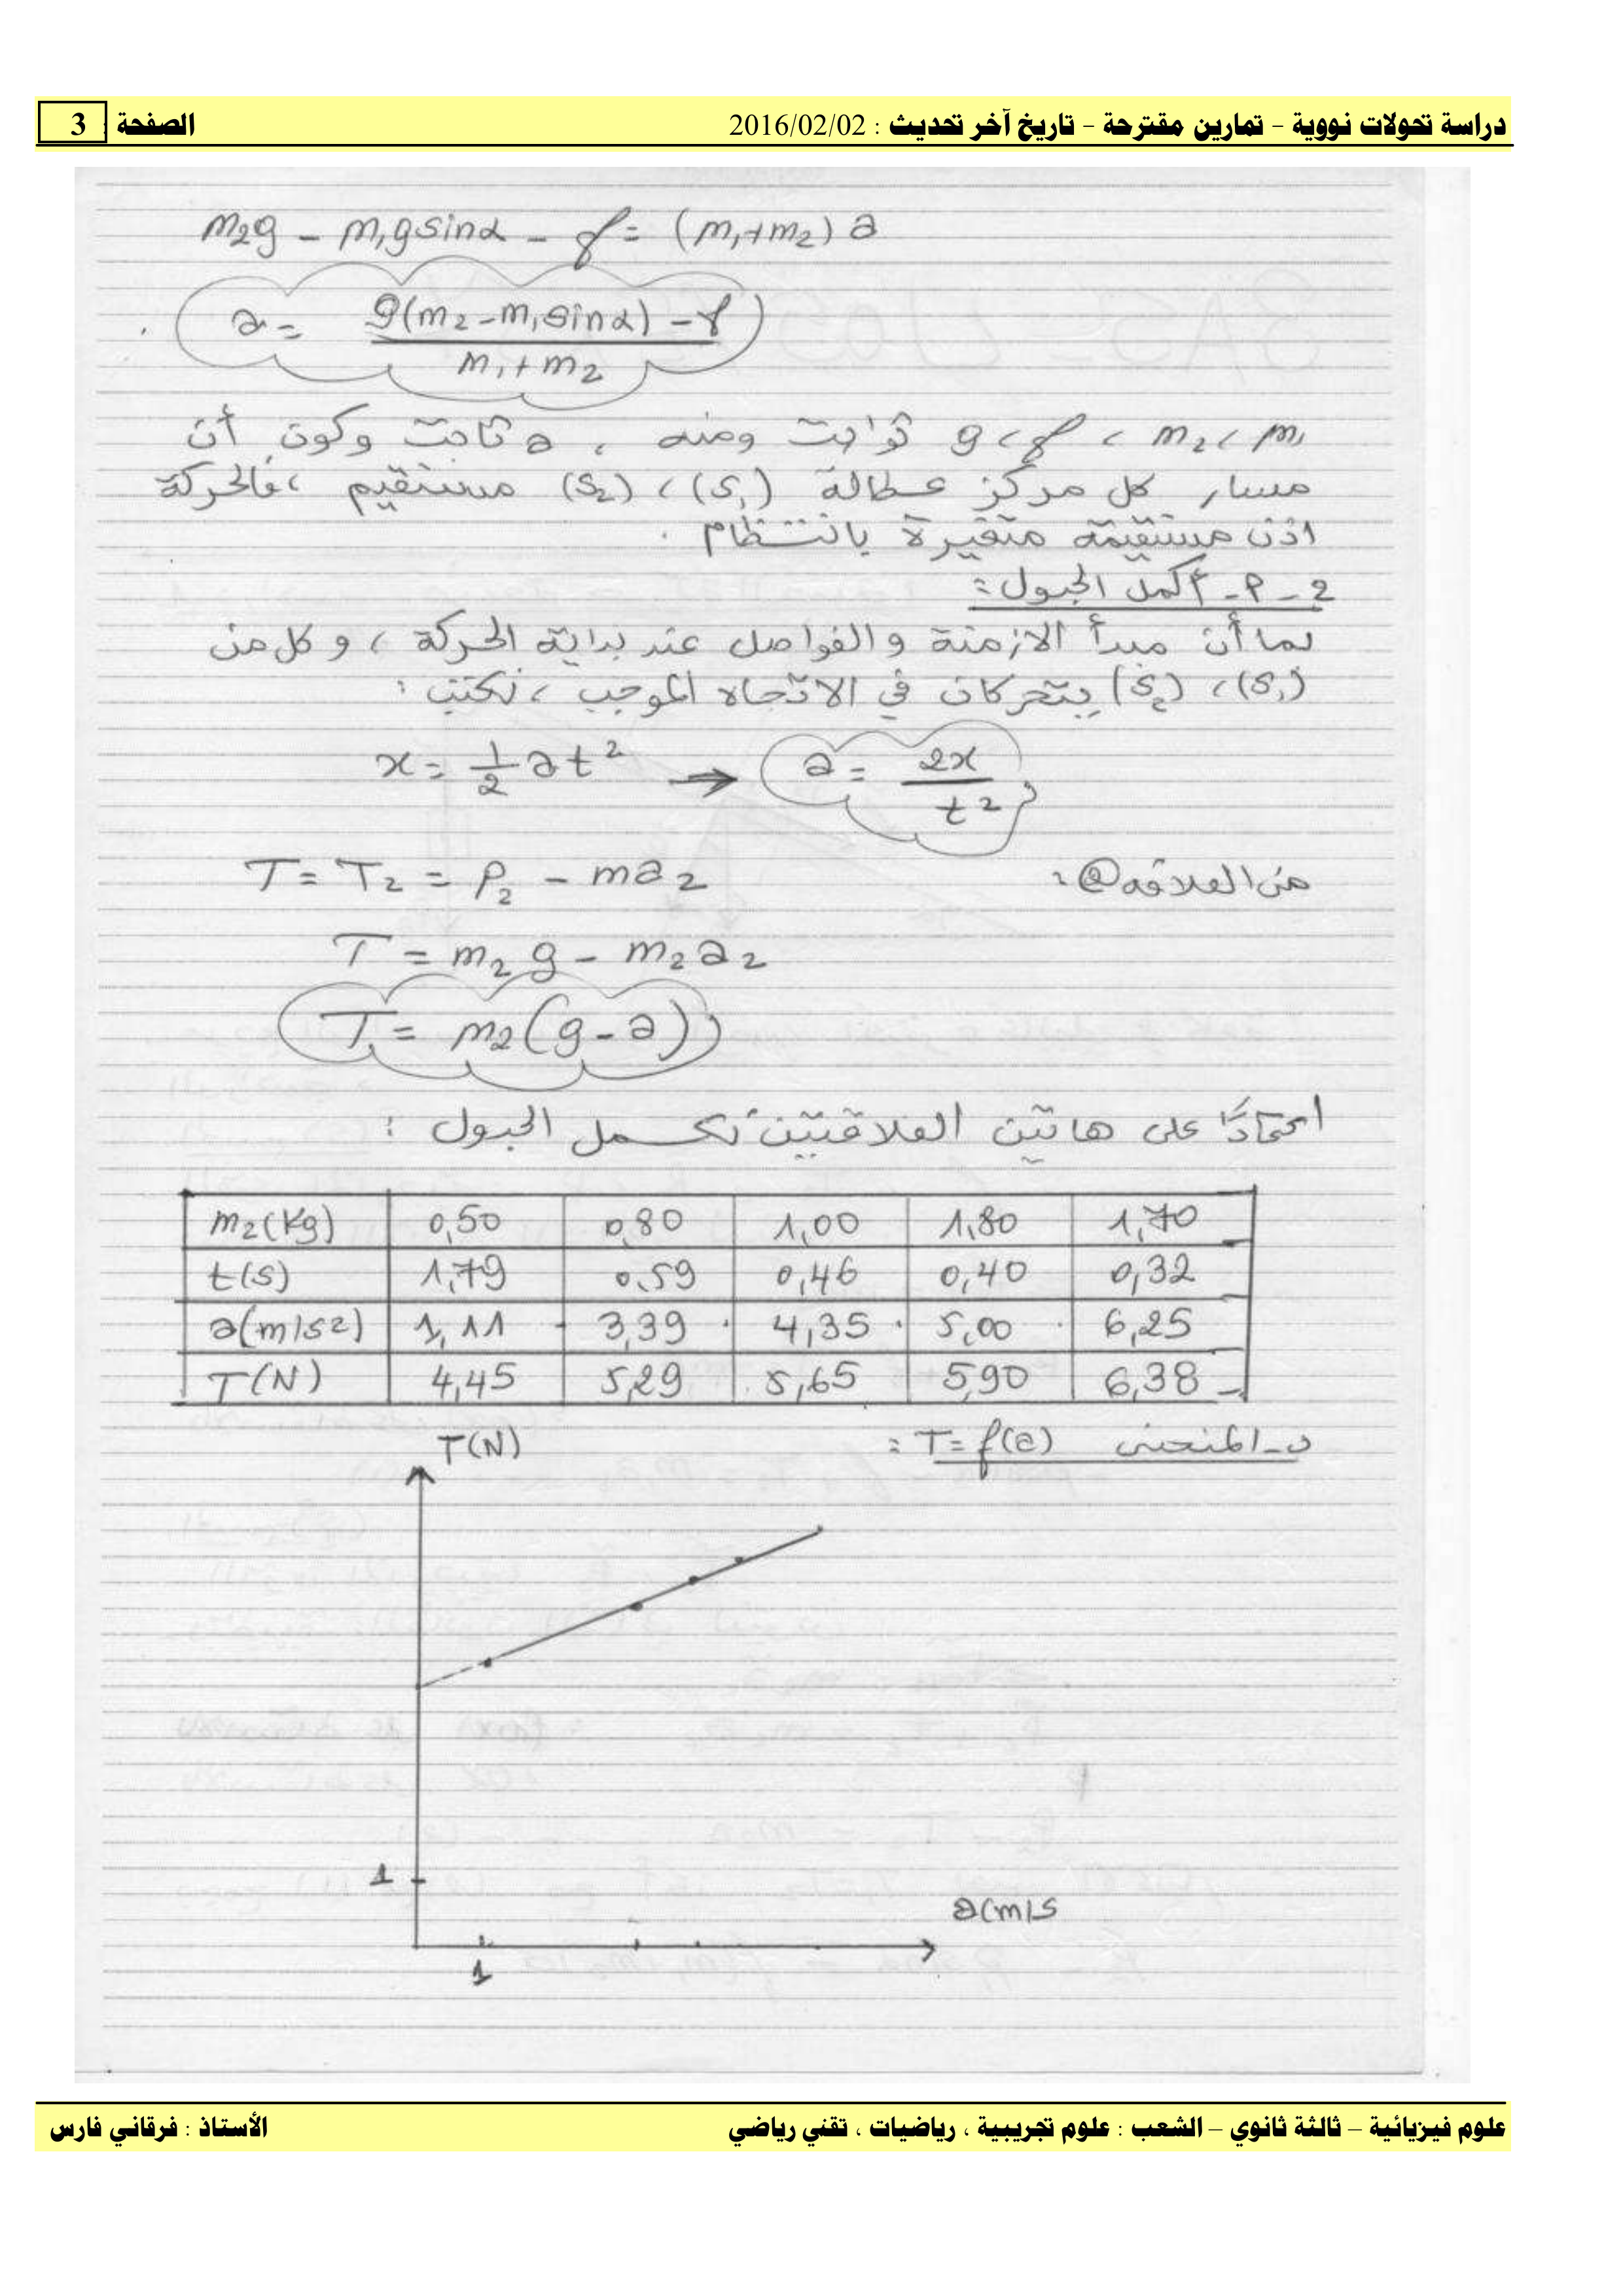 دراسة تحولات نووية – تمارين مقترحة – تاريخ آخر تحديث : 2016/02/02 الصفحة : 3
m₂g - m₁g sinα - f = (m₁+m₂) a
a = g(m₂-m₁sinα) - f / m₁+m₂
m₁ ، m₂ ، f ، g ثوابت ومنه ، a ثابت وكون أن
مسار كل مركز عطالة (S₁) ، (S₂) مستقيم ، فالحركة
اذن مستقيمة متغيرة بانتظام .
2 - أ - أكمل الجدول :
بما أن مبدأ الازمنة والفواصل عند بداية الحركة ، و كل من
(S₁) ، (S₂) يتحركان في الاتجاه الموجب ، نكتب :
x = 1/2 a t² → a = 2x / t²
من العلاقة ② : T = T₂ = P₂ - ma₂
T = m₂ g - m₂ a₂
T = m₂ (g - a)
اعتمادًا على هاتين العلاقتين نكمل الجدول :
m₂(Kg) 0,50 0,80 1,00 1,80 1,70
t(s) 1,79 0,59 0,46 0,40 0,32
a(m/s²) 1,11 3,39 4,35 5,00 6,25
T(N) 4,45 5,29 5,65 5,90 6,38
المنحنى T = f(a) :
T(N)
1
a(m/s
1
علوم فيزيائية – ثالثة ثانوي – الشعب : علوم تجريبية ، رياضيات ، تقني رياضي الأستاذ : فرقاني فارس